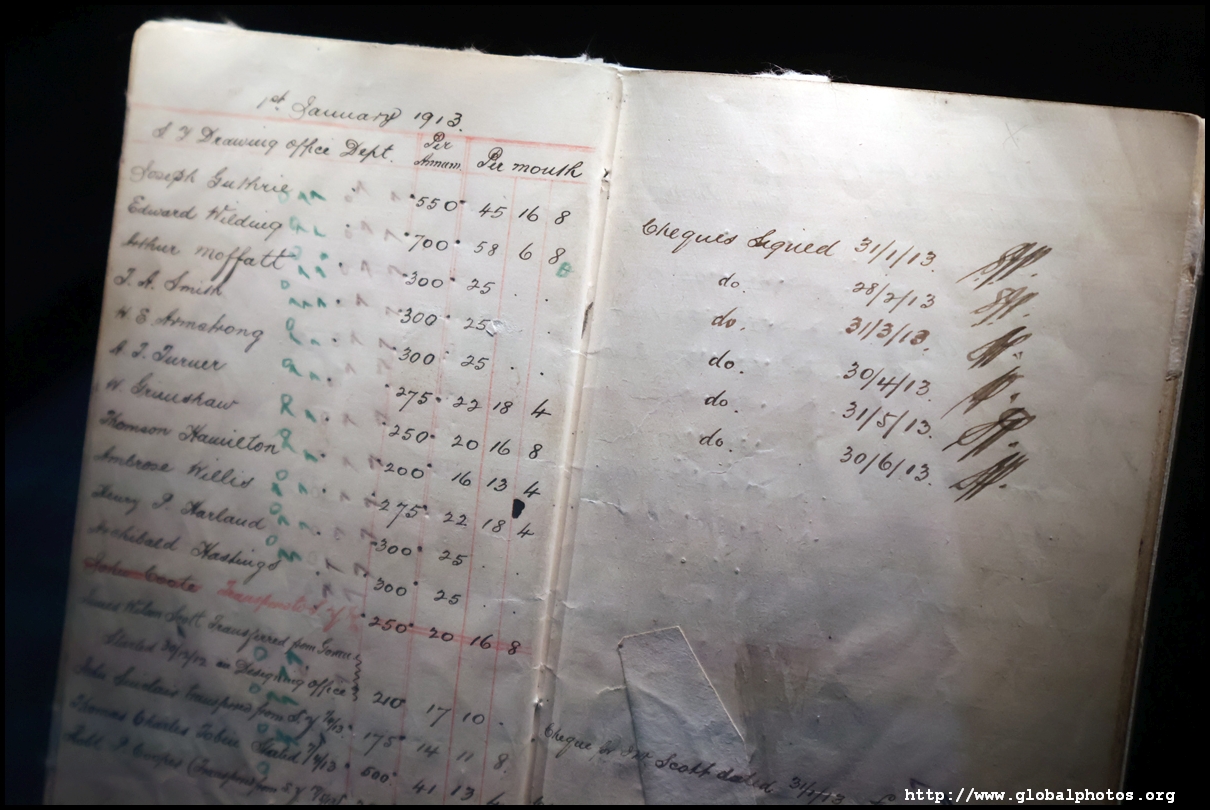 1st January 1913.
S Y Drawing office Dept. Per Annum Per month
Joseph Guthrie 550 45 16 8
Edward Wilding 700 58 6 8
Arthur Moffatt 300 25 . .
J. A. Smith 300 25 .
H. E. Armstrong 300 25 . .
A. J. Turner 275 22 18 4
W. Grimshaw 250 20 16 8
Thomson Hamilton 200 16 13 4
Ambrose Willis 275 22 18 4
Henry P. Harland 300 25 . .
Archibald Hastings 300 25 . .
Coote 250 20 16 8
James Scott Transferred from
Started 30/12/12 in Designing office 210 17 10 .
John Sinclair from S. Y 175 14 11 8
Thomas Charles Tobin Started 500 41 13 4
Robt. (Transferred from S Y
Cheques Signed 31/1/13.
do. 28/2/13
do. 31/3/13.
do. 30/4/13.
do. 31/5/13.
do. 30/6/13.
Cheque Scott dated
http://www.globalphotos.org